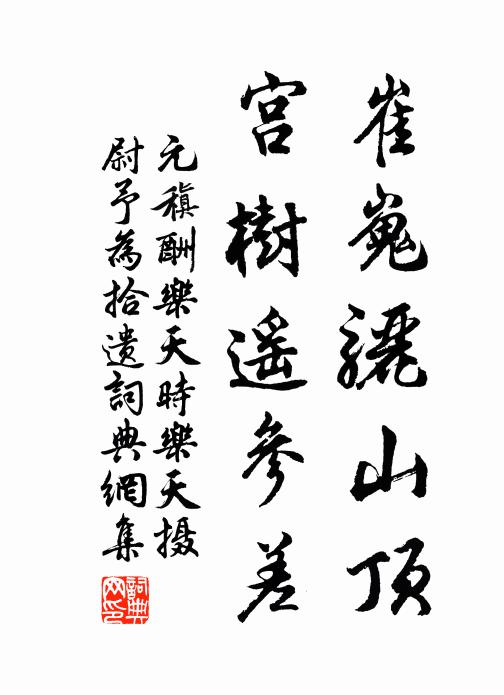 崔嵬驪山頂
宮樹遥參差
元稹酬樂天時樂天摄
尉予為拾遺詞典網集
詞典網印